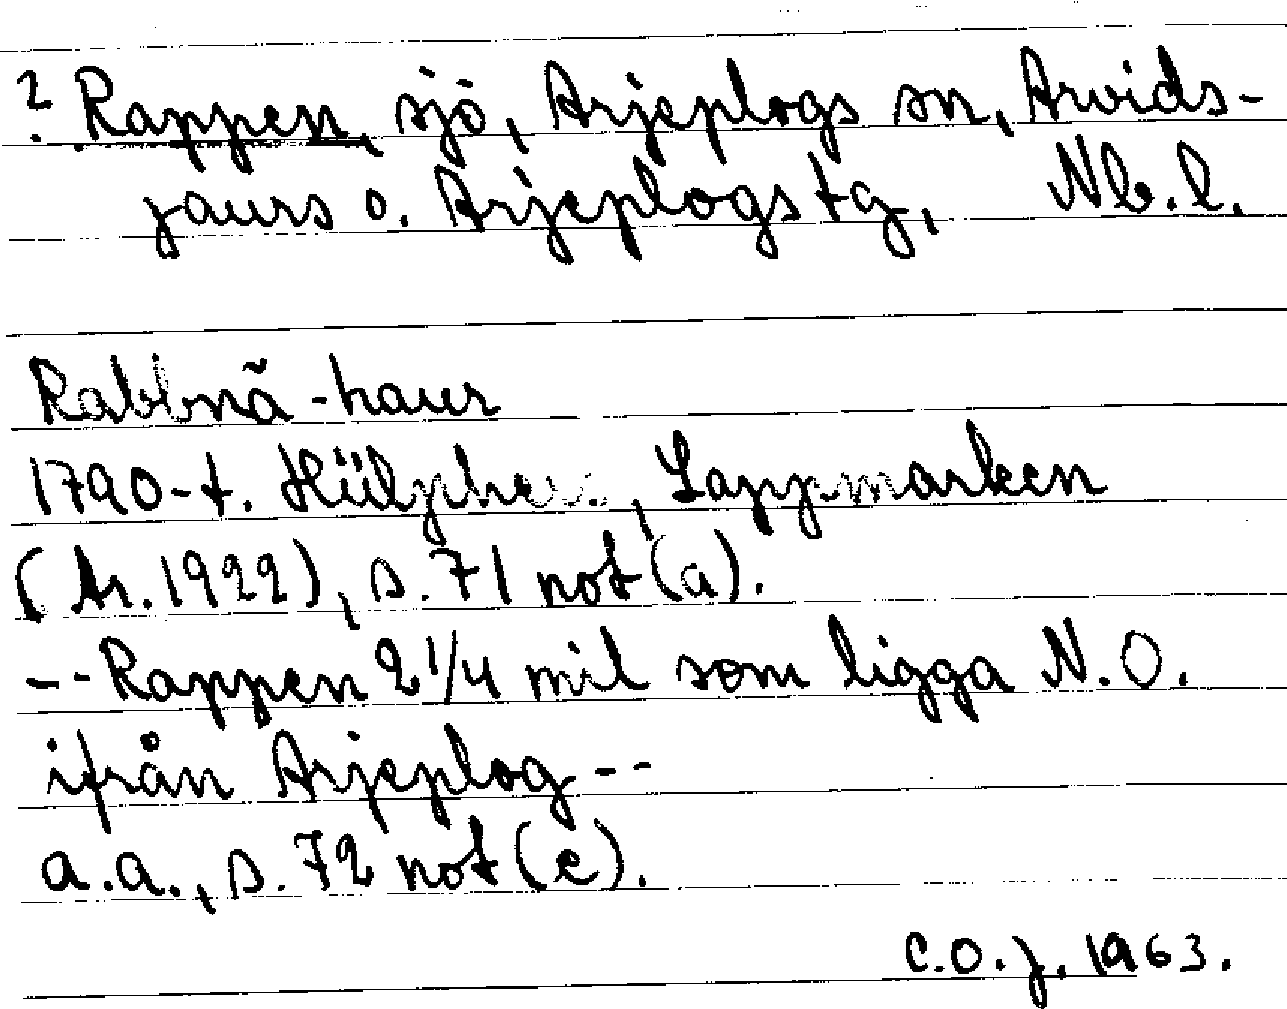 ? Rappen, sjö, Arjeplogs sn, Arvids-
jaurs o. Arjeplogs tg, Nb.l.
Rabbnã-haur
1790-t. Hülpher., Lappmarken
(År. 1922), s. 71 not (a).
-- Rappen 2 1/4 mil som ligga N.O.
ifrån Arjeplog --
a.a., s. 72 not (e).
C.O.J. 1963.